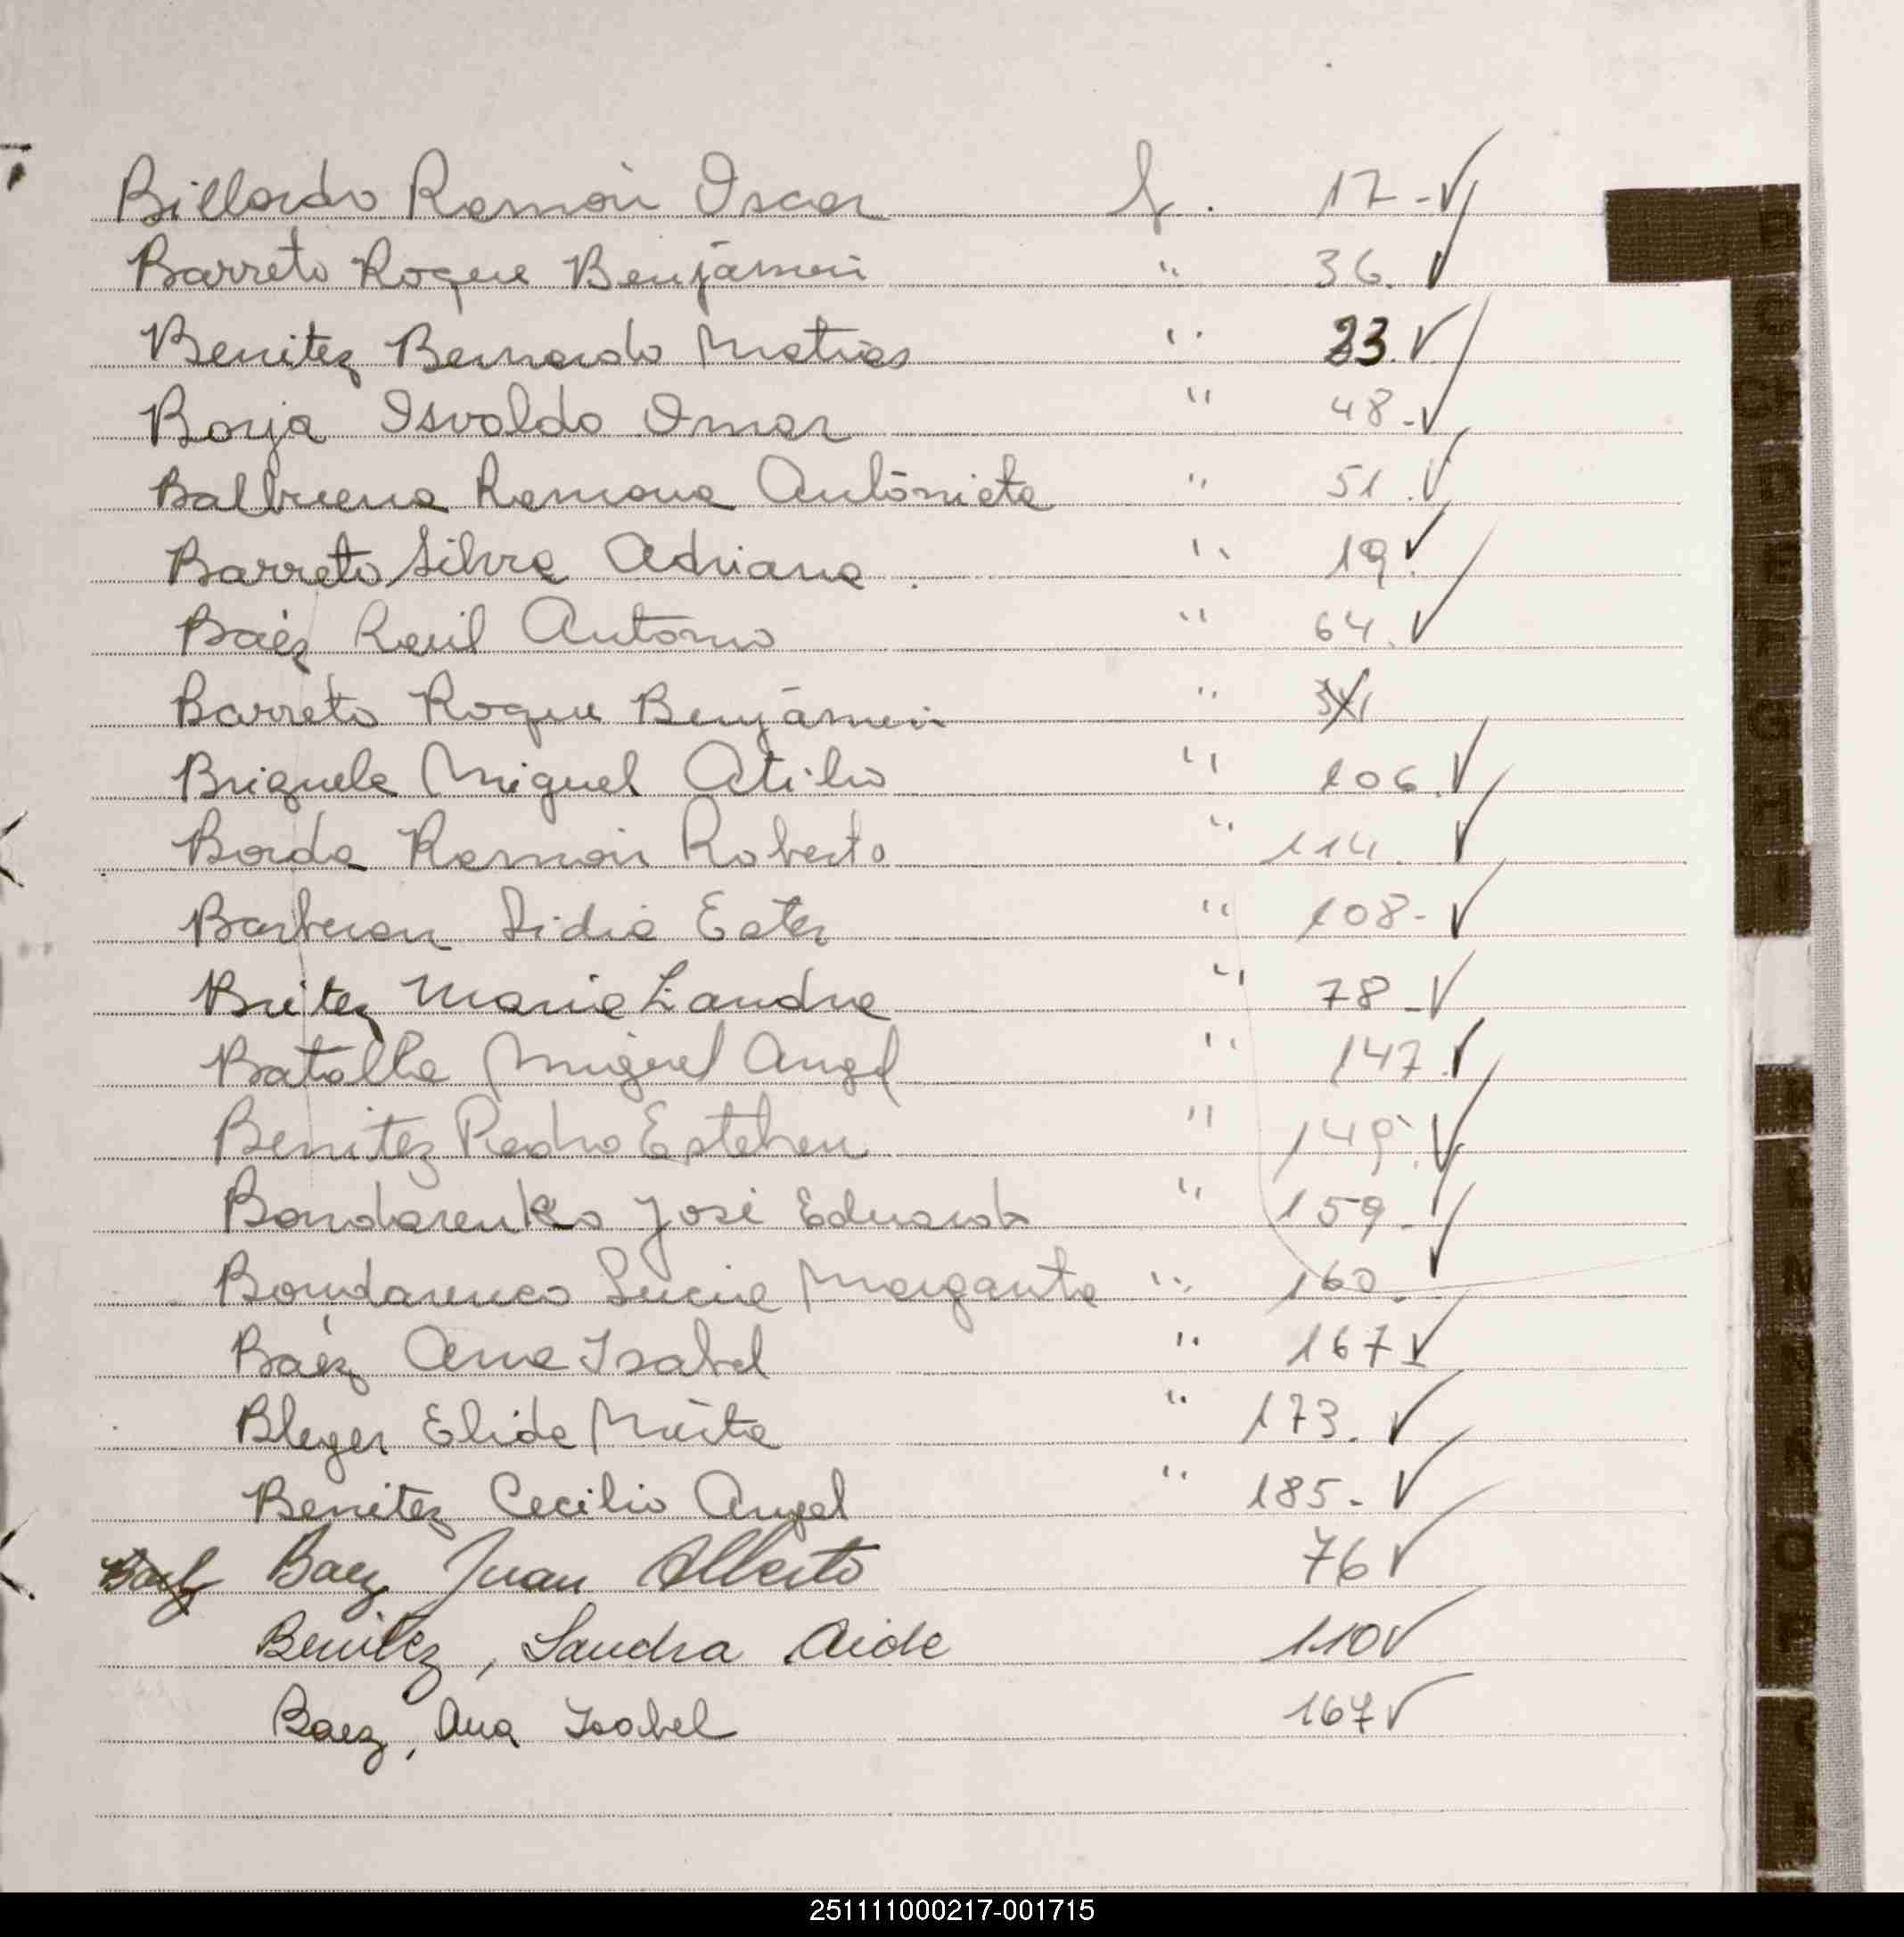 Billordo Ramón Oscar f. 17-✓
Barreto Roque Benjámin " 36. ✓
Benitez Bernardo Matias " 23. ✓
Borja Osvaldo Omar " 48-✓
Balbuena Ramona Antónieta " 51. ✓
Barreto Silvia Adriana. " 19. ✓
Baéz Raúl Antonio " 64. ✓
Barreto Roque Benjámin "
Briquela Miguel Atilio " 106. ✓
Borda Ramón Roberto " 114. ✓
Barberan Lidia Ester " 108- ✓
Britez Maria Zandra " 78-✓
Batalla Miguel Angel " 147. ✓
Benitez Pedro Esteban " 149. ✓
Bondarenko José Eduardo " 159-✓
Bondarenco Lucia Margarita " 160. ✓
Baéz Ana Isabel " 167 ✓
Bleyer Elida Mirta " 173. ✓
Benitez Cecilio Angel " 185- ✓
Baez Juan Alberto 76 ✓
Benitez, Sandra Aide 110 ✓
Baez, Ana Isabel 167 ✓
251111000217-001715